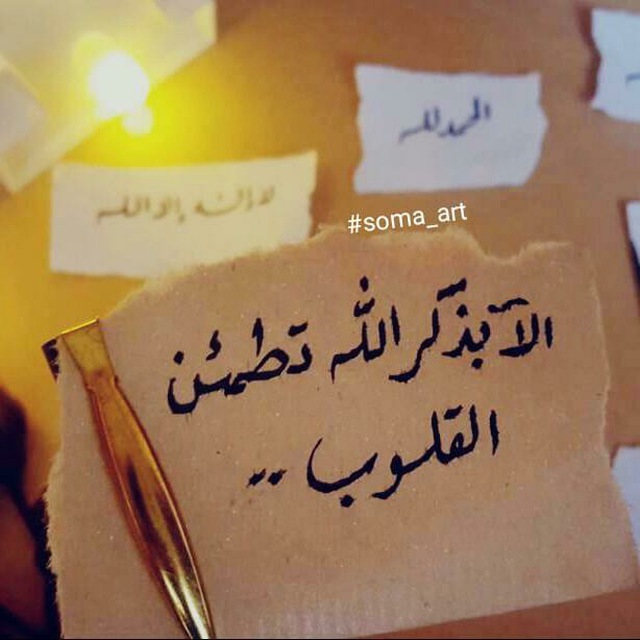 الحمد لله
لا إله إلا الله
#soma_art
الآ بذكر الله تطمئن
القلوب ..